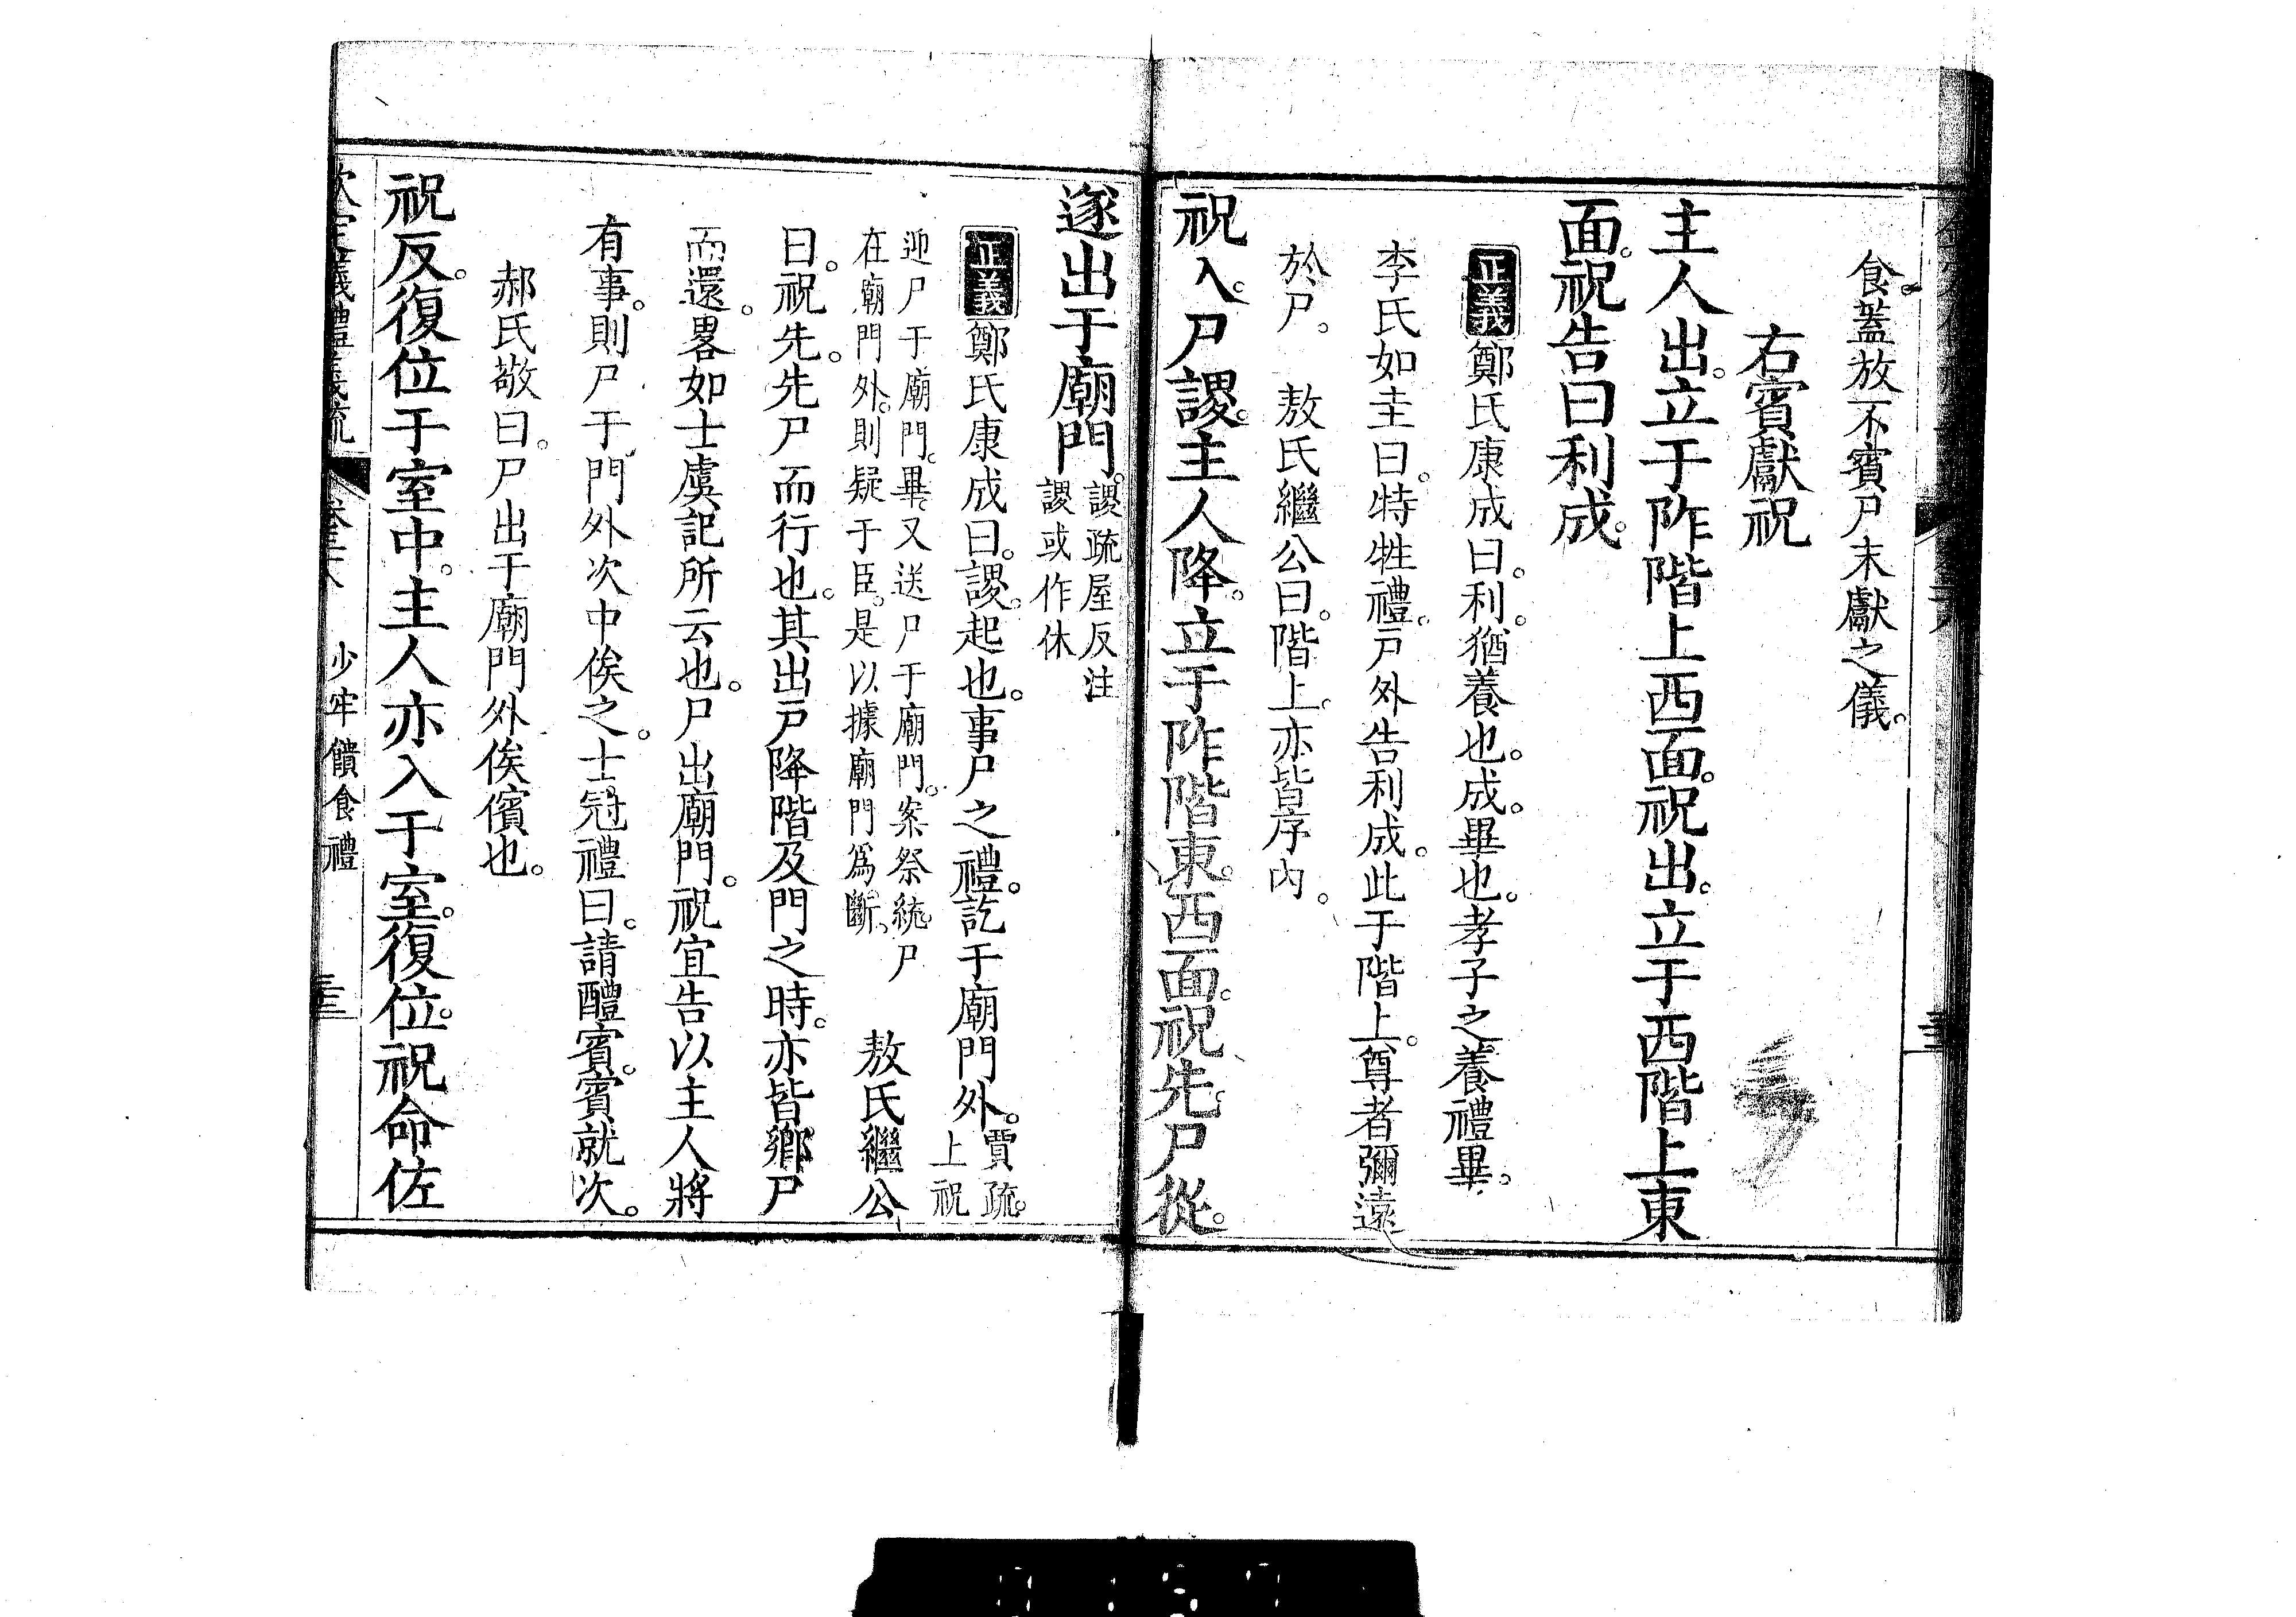 食蓋放不賓尸末獻之儀。
右賓獻祝
主人出。立于阼階上西面。祝出。立于西階上東
面。祝告曰利成。
正義鄭氏康成曰。利。猶養也。成。畢也。孝子之養禮畢。
李氏如圭曰。特牲禮。戸外告利成。此于階上。尊者彌遠
於尸。敖氏繼公曰。階上。亦皆序內。
祝入。尸謖。主人降。立于阼階東。西面。祝先。尸從。
遂出于廟門。
謖疏屋反注
謖或作休
正義鄭氏康成曰。謖。起也。事尸之禮。訖于廟門外。
賈疏。
上祝
迎尸于廟門。畢。又送尸于廟門。案祭統。尸
在廟門外。則疑于臣。是以據廟門爲斷。
敖氏繼公
曰。祝先。先尸而行也。其出戸降階及門之時。亦皆鄉尸
而還。畧如士虞記所云也。尸出廟門。祝宜告以主人將
有事。則尸于門外次中俟之。士冠禮曰。請醴賓。賓就次。
郝氏敬曰。尸出于廟門外俟儐也。
祝反。復位于室中。主人亦入于室。復位。祝命佐
欽定儀禮義疏
少牢饋食禮